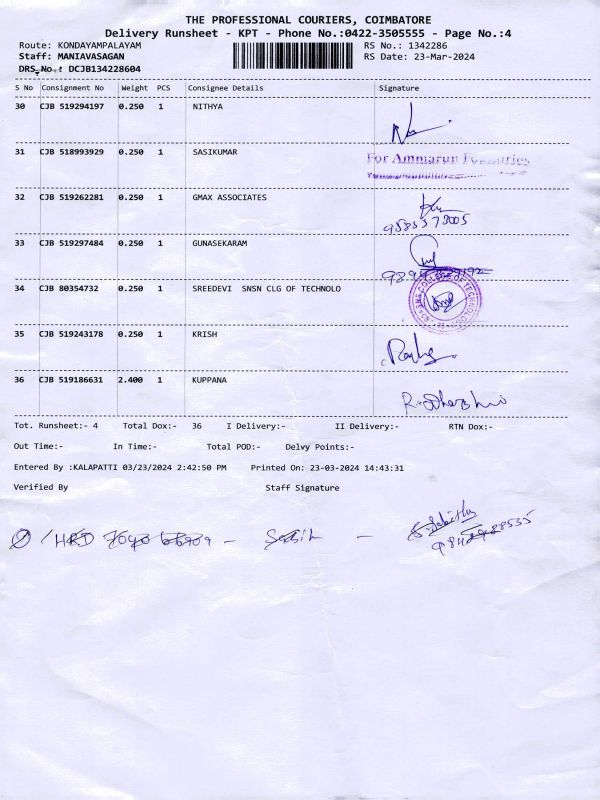 THE PROFESSIONAL COURIERS, COIMBATORE
Delivery Runsheet - KPT - Phone No.:0422-3505555 - Page No.:4
Route: KONDAYAMPALAYAM RS No.: 1342286
Staff: MANIAVASAGAN RS Date: 23-Mar-2024
DRS No.: DCJB134228604
S No Consignment No Weight PCS Consignee Details Signature
30 CJB 519294197 0.250 1 NITHYA
31 CJB 518993929 0.250 1 SASIKUMAR
For Ammarun
32 CJB 519262281 0.250 1 GMAX ASSOCIATES
33 CJB 519297484 0.250 1 GUNASEKARAM
34 CJB 80354732 0.250 1 SREEDEVI SNSN CLG OF TECHNOLO
COLLEGE OF TECHNOLOGY
35 CJB 519243178 0.250 1 KRISH
36 CJB 519186631 2.400 1 KUPPANA
Tot. Runsheet:- 4 Total Dox:- 36 I Delivery:- II Delivery:- RTN Dox:-
Out Time:- In Time:- Total POD:- Delvy Points:-
Entered By :KALAPATTI 03/23/2024 2:42:50 PM Printed On: 23-03-2024 14:43:31
Verified By Staff Signature